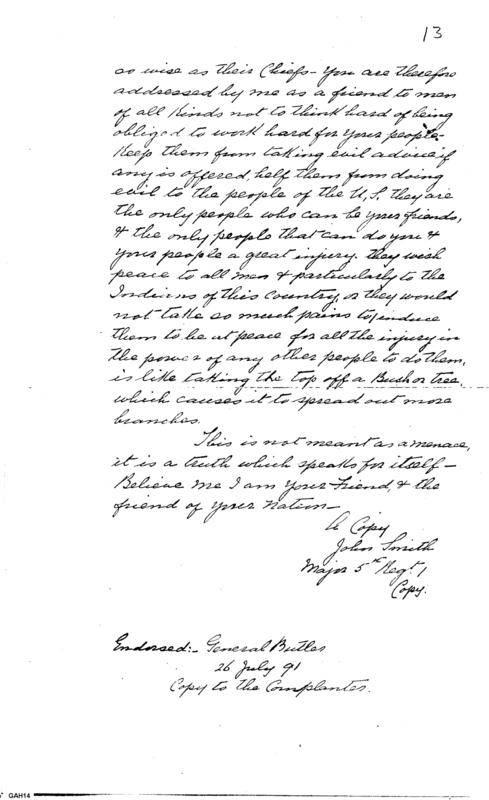 13
so wise as their Chiefs - You are therefore
addressed by me as a friend to men
of all kinds not to think hard of being
obliged to work hard for your people -
Keep them from taking evil advice if
any is offered, help them from doing
evil to the people of the U.S. they are
the only people who can be your friends,
& the only people that can do you &
your people a great injury. they wish
peace to all men & particularly to the
Indians of this Country, or they would
not take so much pains to induce
them to be at peace for all the injury in
the power of any other people to do them,
is like taking the top off a Bush or tree,
which causes it to spread out more
branches.
This is not meant as a menace,
it is a truth which speaks for itself -
Believe me I am your Friend, & the
friend of your Nation -
A Copy
John Smith
Major 5th Regt.
Copy.
Endorsed:- General Butler
26 July 91
Copy to the Complanter.
GAH14